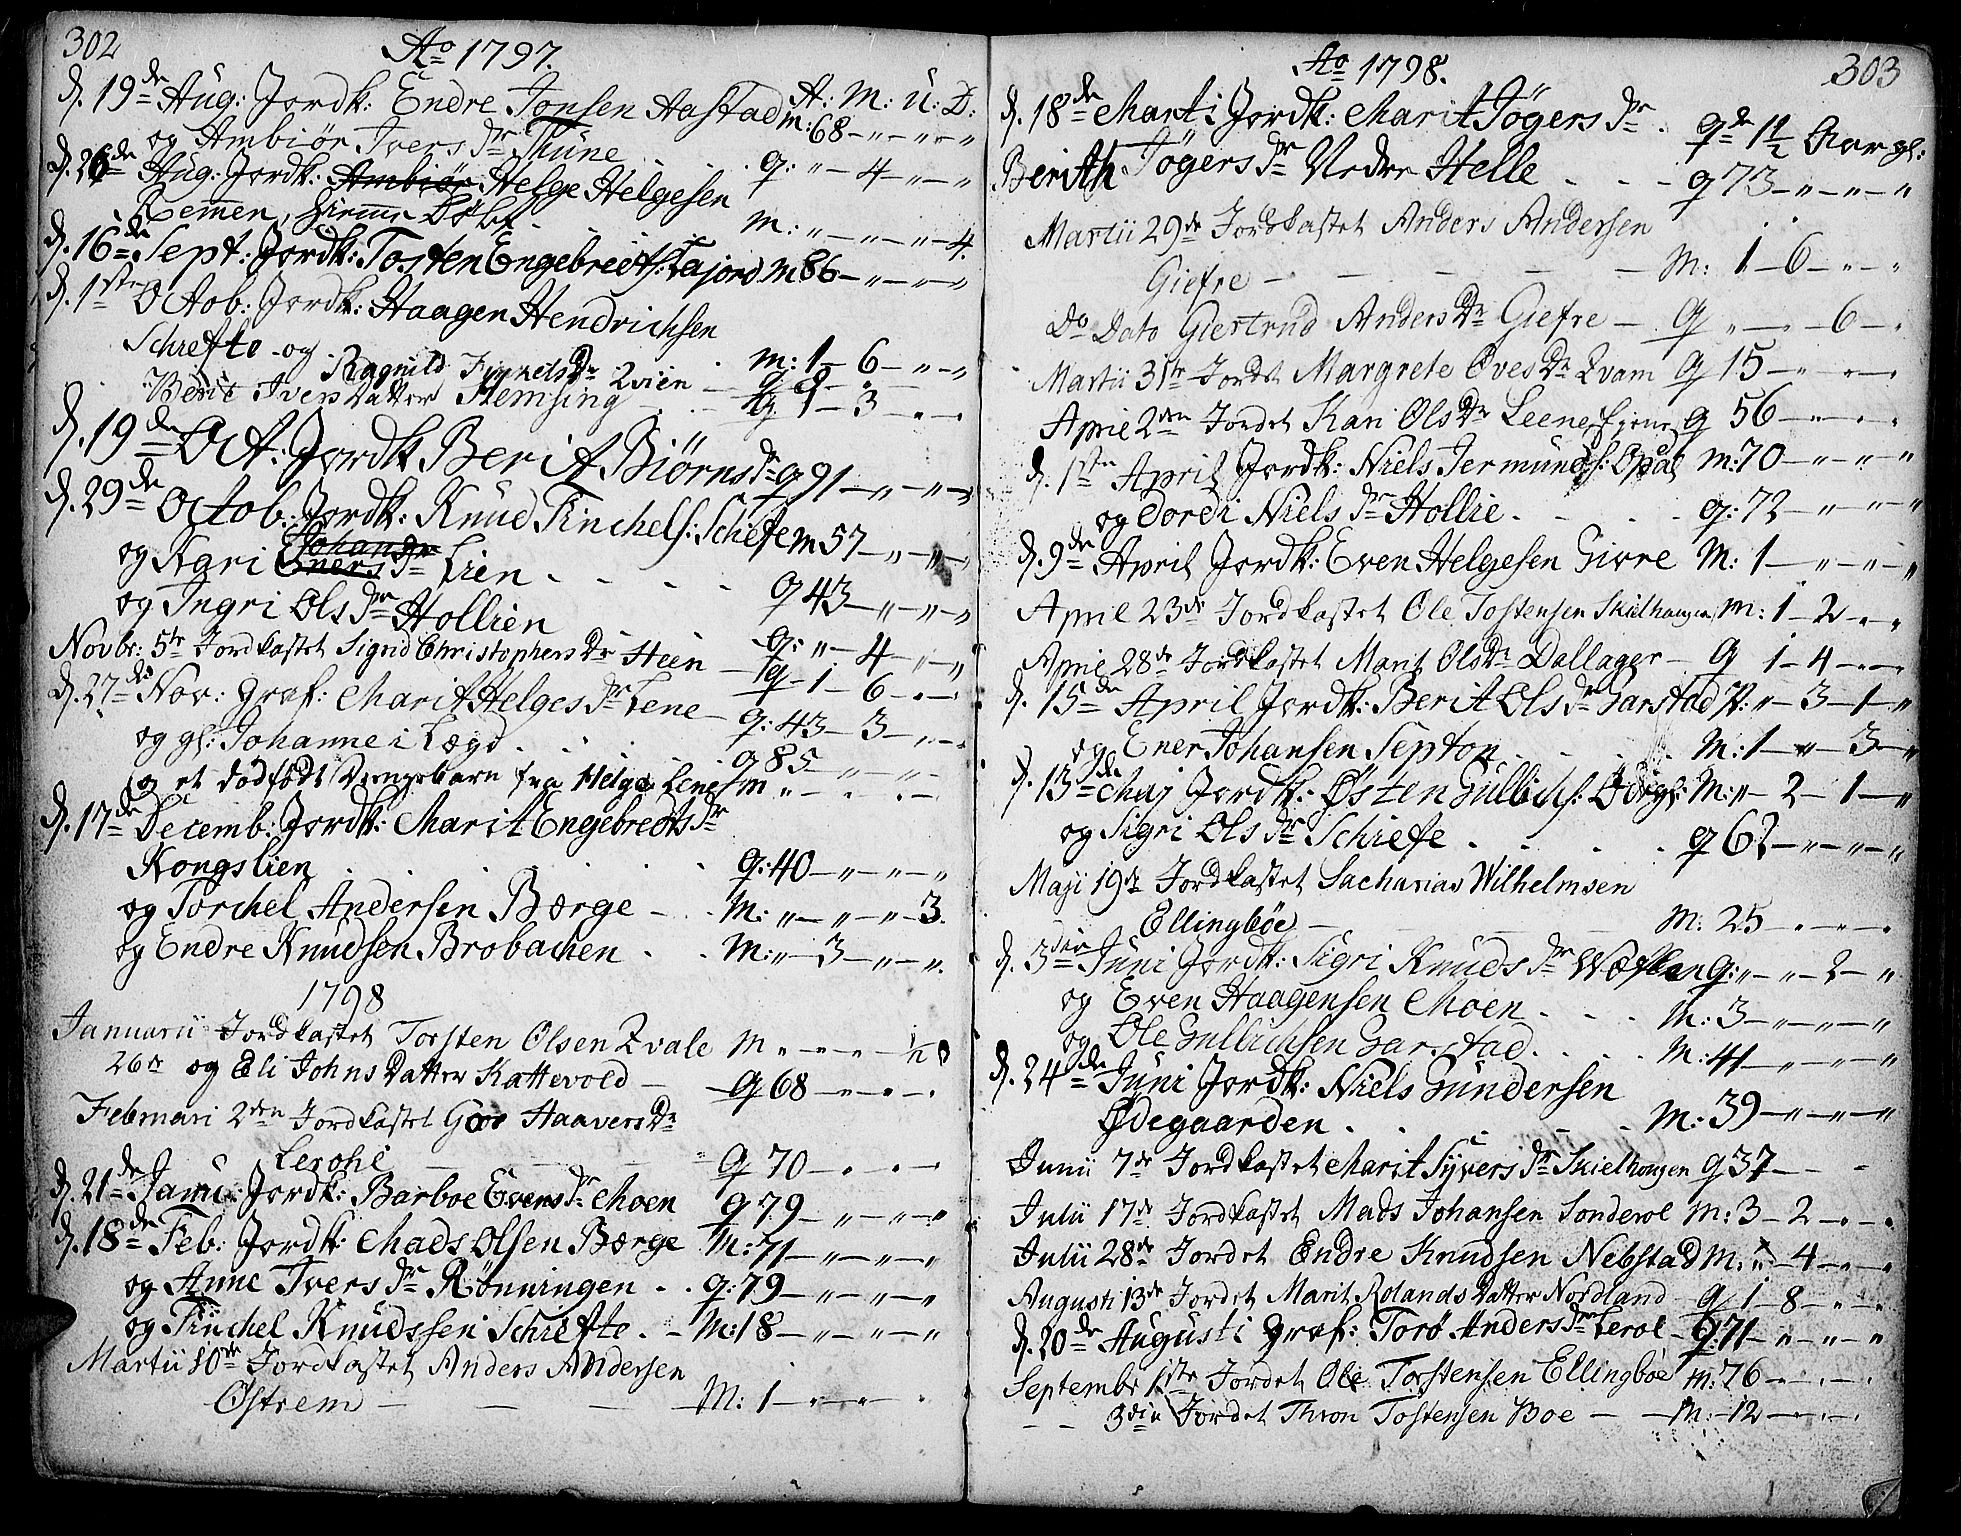 302
Ao 1797.
A: M: U: D:
d. 19de Aug: Jordk: Endre Jonsen Aastad m: 68 – " – " – "
og Ambiør Ivers dr Thune . . . q: " – 4 – " – "
d. 26de Aug: Jordk: Ambiør Helge Helgesen
Remmen, . . . m: " – " – " – 4.
d. 16de Sept: Jordk: Tosten Engebrectf: Fajord m 86 – " – " – "
d. 1ste Octob: Jordk: Haagen Hendrichsen
Schrefte . . . m: 1 – 6 – " – "
og Ragnild Finkelsdr Qvien
Berit Iversdatter Hemsing – q 1 – 3 – " – "
d. 19de Oct: Jordk Berit Biørns dr q 91 – " – " – "
d. 29de Octob: Jordk: Knud Tinchelf: Schefte m 57 – " – " – "
og Kari Johans Eners dr Lien . . . q 43 – " – " – "
og Ingri Ols dr Hollien q: " – 4 – " – "
Novbr: 5te Jordkastet Sigrid Christophersdr Heen – q – 1 – 6 – " – "
d. 27de Nov: græf: Marit Helges dr Lene – q: 43 – 3 – " – "
og gl: Johanne i Lægd . . . q 85 – " – " – "
og et dødfødt Drengebarn fra Helge Lene m " – " – " – "
d. 17de Decemb: Jordk: Marit Engebrectsdr
Kongslien . . . q: 40 – " – " – "
og Torchel Andersen Børge – . m: " – " – " – 3.
og Endre Knudsen Brobachen . . m: " – 3 – " – ".
1798
Januarii Jordkastet Torsten Olsen Qvale m " – " – " – 1/2
26de og Eli Johnsdatter Kattevold – q 68 – " – " – "
Februari 2den Jordkastet Goro Haaversdr
Lerohl – q 70 – " – " – "
d. 21de Janu: Jordk: Barboe Evensdr Moen q 79 – " – " – "
d. 18de Feb: Jordk: Mads Olsen Børge m: 71 – " – " – "
og Anne Ivers dr Rønningen . . q: 79 – " – " – "
og Tinchel Knudssen Schrefte . – m: 18 – " – " – "
Martii 10de Jordkastet Anders Andersen
Østrem – – – m: 1 – " – " – "
303
Ao 1798.
d. 18de Marti Jordk: Marit Jøgers dr . qde 1 1/2 Aar gl:
Berith Jøgers dr Nedre Helle . . . q 73 – " – " – "
Martii 29de Jordkastet Anders Andersen
Giefre – – – – m: 1 – 6 – " – "
Do Dato Giertrud Andersdr Giefre – q " – " – 6 – "
Martii 31te Jordet Margrete Ovesdr Qvam q 15 – " – " – "
April 2den Jordet Kari Olsdr Leene q 56 – " – " – "
d. 1ste April Jordk: Niels Jermundf: Opdal m: 70 – " – " – "
og Dordi Niels dr Hollie . . . q: 72 – " – " – "
d. 9de April Jordk: Even Helgesen Givre m: 1 – " – " – "
April 23de Jordkastet Ole Tostensen Skielhaugen m: 1 – 2 – " – "
April 28de Jordkastet Marit Olsdr Dallager – q 1 – 4 – " – "
d. 15de April Jordk: Berit Ols dr Garstad q: " – 3 – 1 – "
og Ener Johansen Septon . . . m: 1 – " – 3 – "
d. 13de Maj Jordk: Østen Gulbichf: Ødeg: m: " – 2 – 1 – "
og Sigri Ols dr Schrefte . . . q 62 – " – " – "
Maji 19de Jordkastet Sacharias Wilhelmsen
Ellingbøe – – m: 25 – " – " – "
d. 3die Juni Jordk: Sigri Knuds dr q: " – " – 2 – "
og Even Haagensen Moen . . . m: 3 – " – " – "
og Ole Gullichsen Garstad . . . m: 41 – " – " – "
d. 24de Juni Jordk: Niels Gundersen
Ødegaarden . . . m: 39 – " – " – "
Junii 7de Jordkastet Marit Syvers dr Skielhaugen q 37 – –
Julii 17de Jordkastet Mads Johansen Sonderol m: 3 – 2 – " – "
Julii 28de Jordet Endre Knudsen Nebstad m: " – 4 – " – "
Augusti 13de Jordet Marit Rolandsdatter Nordland – q 1 – 8 – " – "
d. 20de Augusti græf: Torø Anders dr Lerol – q: 71 – " – " – "
Septembr 1ste Jordet Ole Torstensen Ellingbøe m: 76 – " – " – "
– – 3die Jordet Thron Tostensen Boe – – m: – 12 – " – " – "